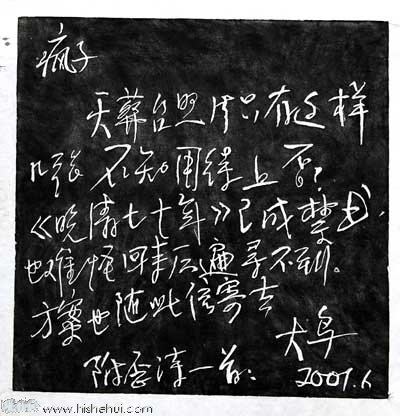 疯子
天葬台照片只有这样
几张 不知用得上否?
《晚清七十年》已成禁书,
也难怪回来后遍寻不到。
方案也随此信寄去
大阜
附歪诗一首: 2007.6
www.hishehui.com